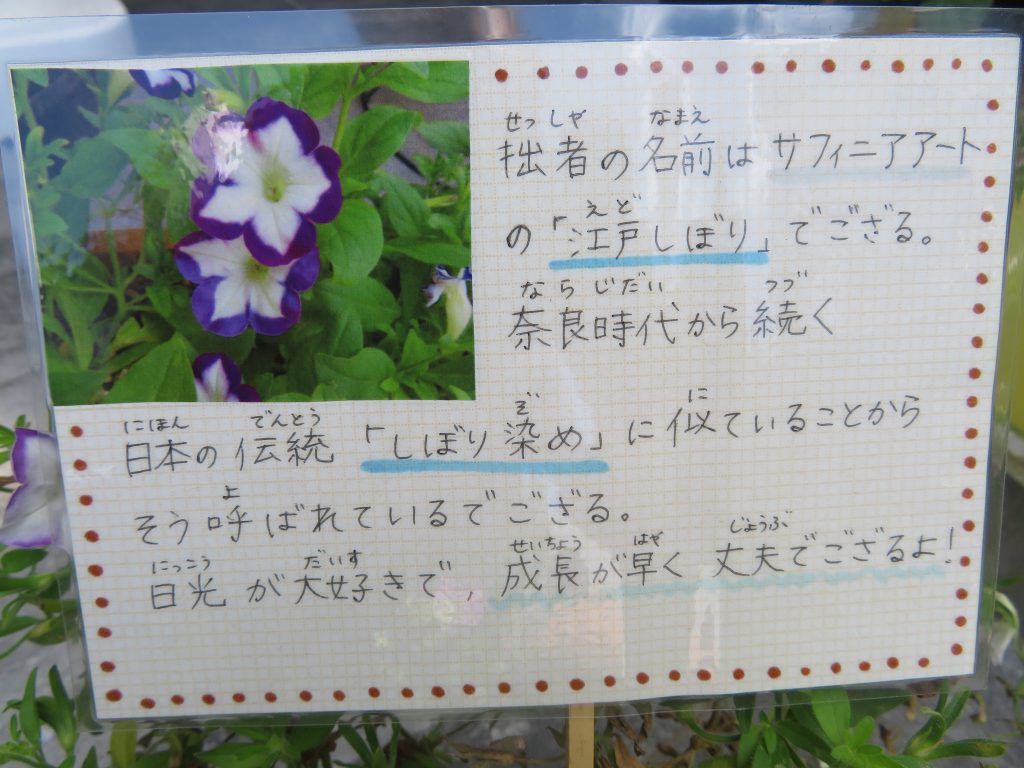 せっしゃ なまえ
拙者の名前はサフィニアアート
えど
の「江戸しぼり」でござる。
ならじだい つづ
奈良時代から続く
にほん でんとう ぞ に
日本の伝統「しぼり染め」に似ていることから
よ
そう呼ばれているでござる。
にっこう だいす せいちょう はや じょうぶ
日光が大好きで、成長が早く丈夫でござるよ!